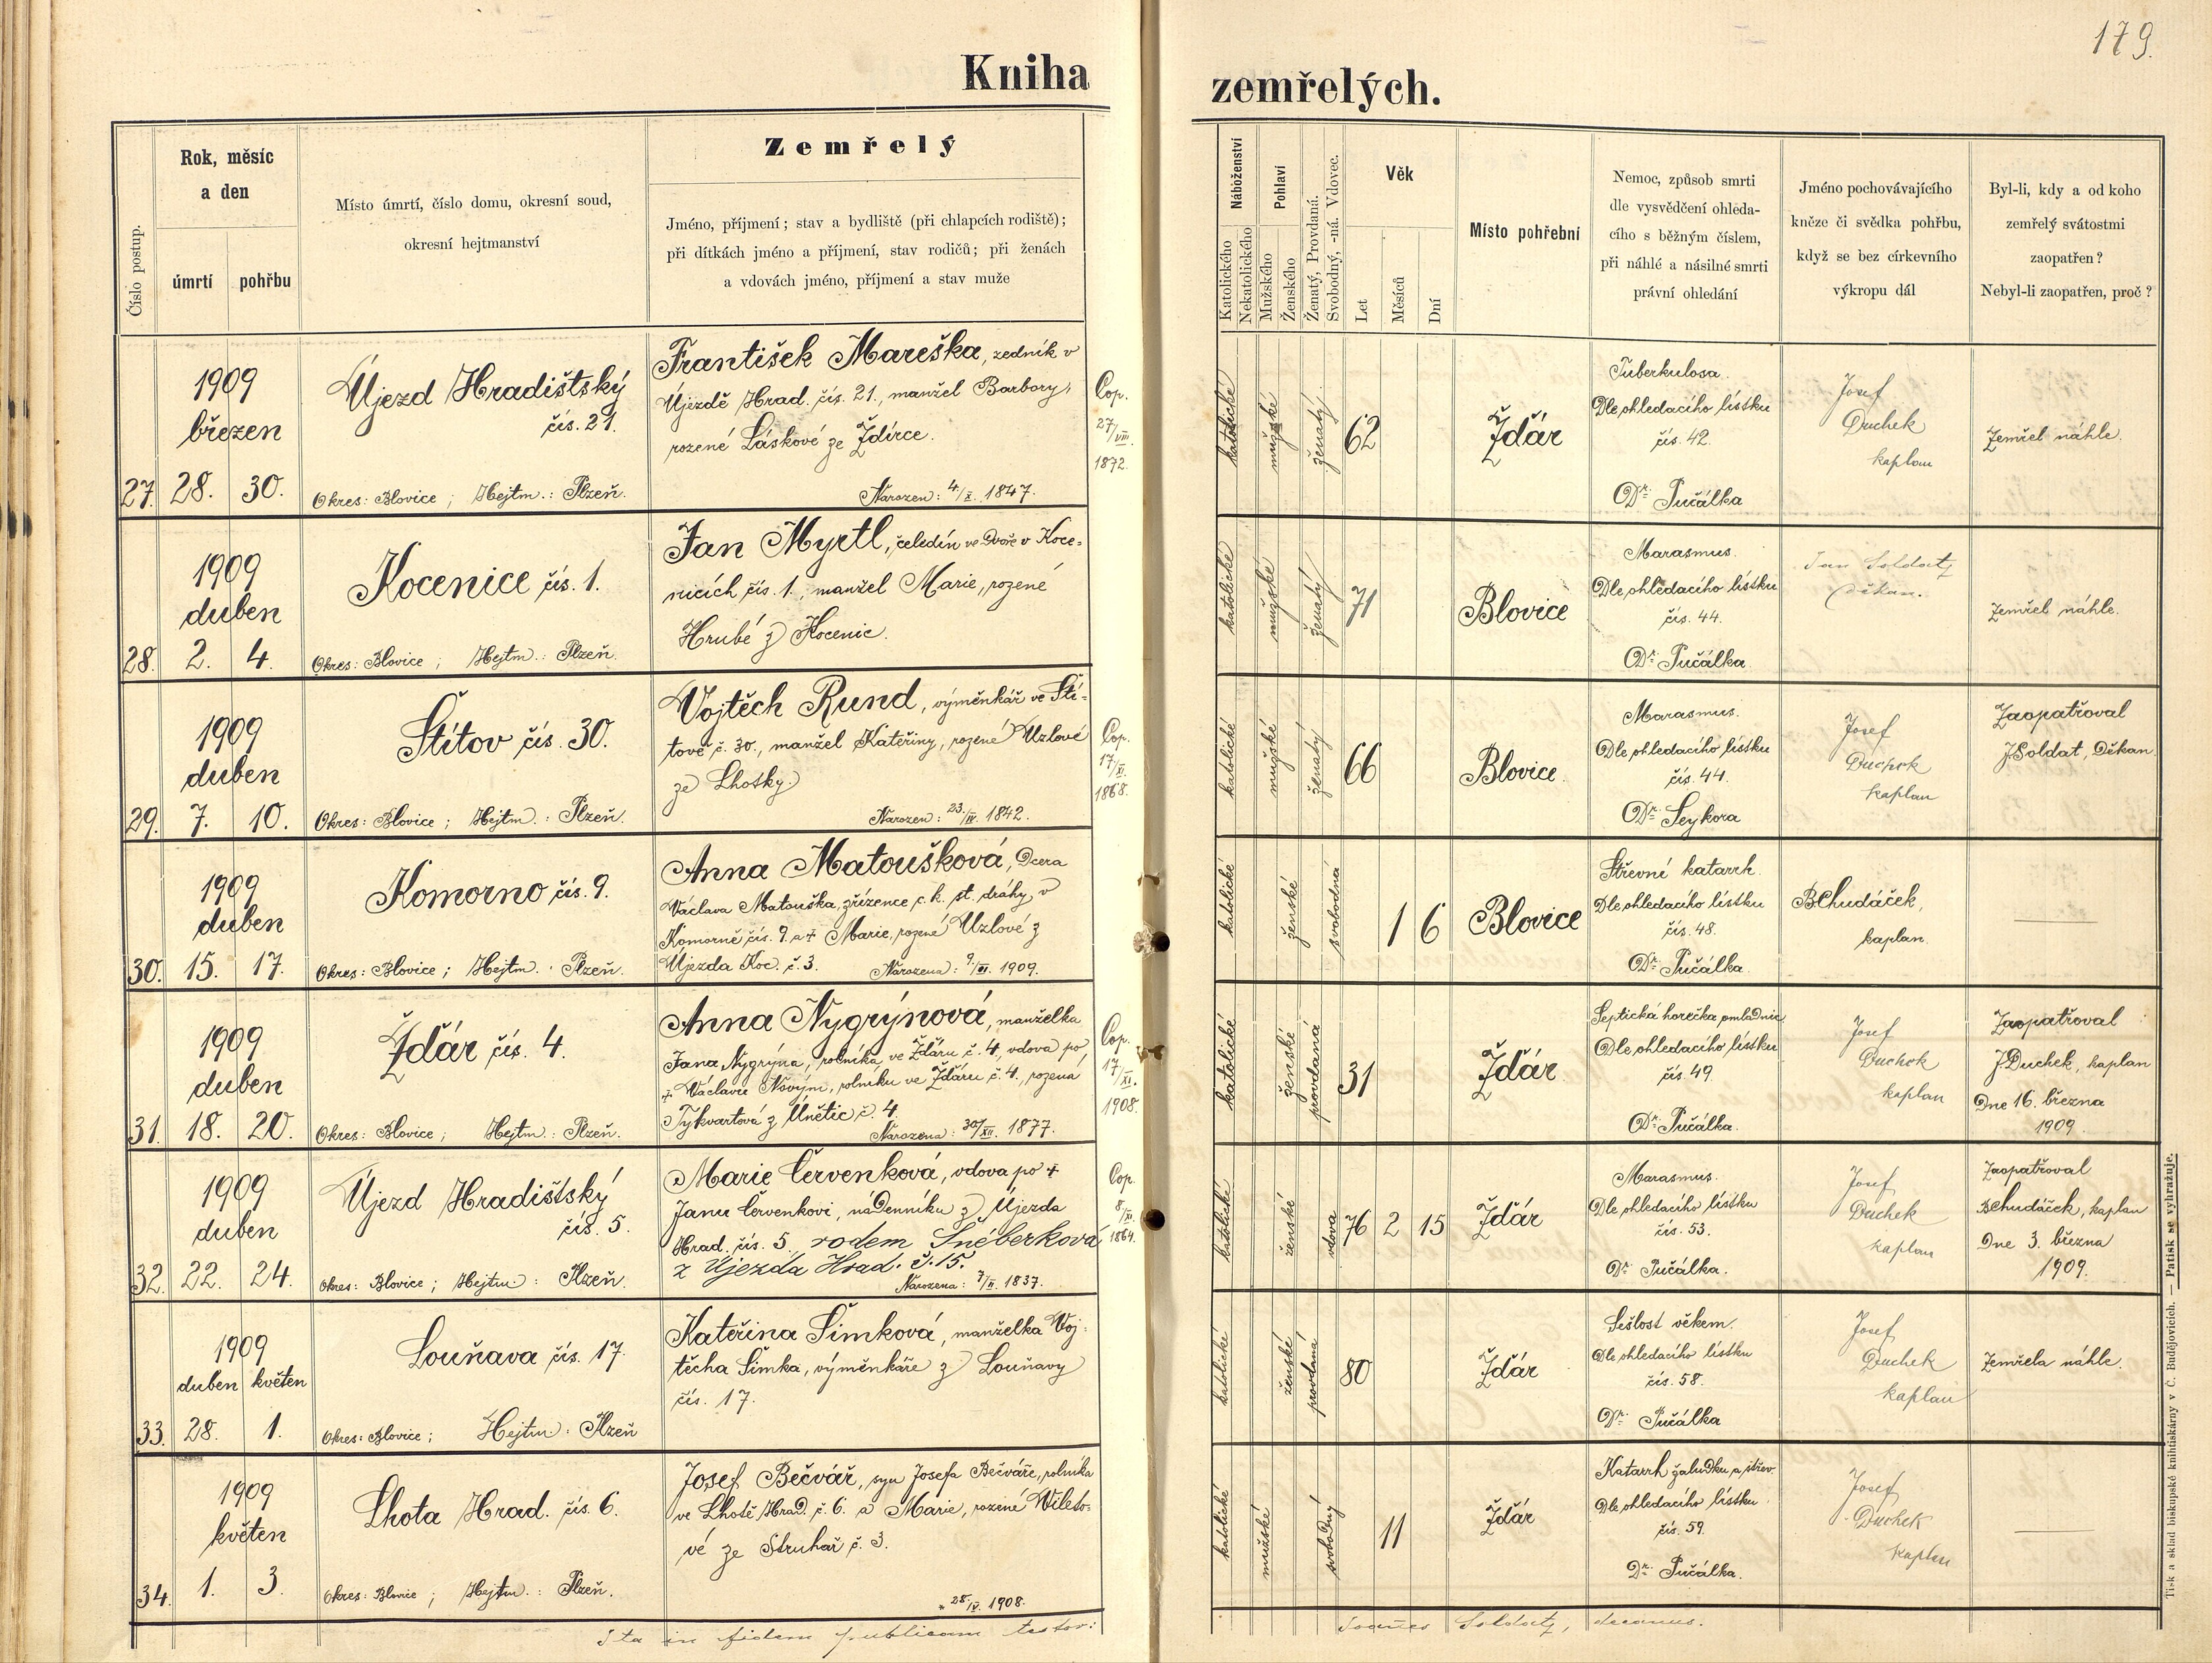 179.
Kniha zemřelých.
Číslo postup.
Rok, měsíc
a den
úmrtí
pohřbu
Místo úmrtí, číslo domu, okresní soud,
okresní hejtmanství
Zemřelý
Jméno, příjmení; stav a bydliště (při chlapcích rodiště);
při dítkách jméno a příjmení, stav rodičů; při ženách
a vdovách jméno, příjmení a stav muže
Náboženství
Katolického
Nekatolického
Pohlaví
Mužského
Ženského
Ženatý, Provdaná.
Svobodný, -ná. Vdovec.
Věk
Let
Měsíců
Dní
Místo pohřební
Nemoc, způsob smrti
dle vysvědčení ohleda-
cího s běžným číslem,
při náhlé a násilné smrti
právní ohledání
Jméno pochovávajícího
kněze či svědka pohřbu,
když se bez církevního
výkropu dál
Byl-li, kdy a od koho
zemřelý svátostmi
zaopatřen?
Nebyl-li zaopatřen, proč?
27.
1909
březen
28. 30.
Újezd Hradištský
čís. 21.
Okres: Blovice; Hejtm.: Plzeň.
František Mareška, zedník v
Újezdě Hrad. čís. 21., manžel Barbory,
rozené Láskové ze Ždírce.
Narozen: 4/X. 1847.
Cop.
27/VIII.
1872.
katolické
mužské
ženatý
62
Ždár
Tuberkulosa.
Dle ohledacího lístku
čís. 42.
Dr. Pučálka
Josef
Duchek
kaplan
Zemřel náhle.
28.
1909
duben
2. 4.
Kocenice čís. 1.
Okres: Blovice; Hejtm.: Plzeň.
Jan Myrtl, čeledín ve Dvoře v Koce-
nicích čís. 1., manžel Marie, rozené
Hrubé z Kocenic.
katolické
mužské
ženatý
71
Blovice
Marasmus.
Dle ohledacího lístku
čís. 44.
Dr. Pučálka
Jan Soldat,
děkan.
Zemřel náhle.
29.
1909
duben
7. 10.
Štítov čís. 30.
Okres: Blovice; Hejtm.: Plzeň.
Vojtěch Rund, výměnkář ve Ští-
tově č. 30., manžel Kateřiny, rozené Uzlové
ze Lhotky.
Narozen: 23./IV. 1842.
Cop.
17/XI.
1868.
katolické
mužské
ženatý
66
Blovice.
Marasmus.
Dle ohledacího lístku
čís. 44.
Dr. Seykora
Josef
Duchek
kaplan
Zaopatřoval
J Soldat, Děkan.
30.
1909
duben
15. 17.
Komorno čís. 9.
Okres: Blovice; Hejtm. Plzeň.
Anna Matoušková, Dcera
Václava Matouška, zřízence c. k. st. dráhy, v
Komorně čís. 9. a + Marie, rozené Uzlové z
Újezda Koc. č. 3. Narozena: 9./III. 1909.
katolické
ženské
svobodná
1 6
Blovice
Střevní katarrh.
Dle ohledacího lístku
čís. 48.
Dr. Pučálka.
BChudáček,
kaplan.
31.
1909
duben
18. 20.
Ždár čís. 4.
Okres: Blovice; Hejtm.: Plzeň.
Anna Nygrýnová, manželka
Jana Nygrýna, rolníka, ve Žďáru č. 4., vdova po
+ Václavu Novým, rolníku ve Ždáru č. 4., rozená
Tykvartová z Únětic č. 4.
Narozena: 30/XII. 1877.
Cop.
17/XI.
1908.
katolické
ženské
provdaná
31
Ždár.
Septická horečka omladnic
Dle ohledacího lístku
čís. 49.
Dr. Pučálka.
Josef
Duchek
kaplan
Zaopatřoval
J Duchek, kaplan
Dne 16. března
1909.
32.
1909
duben
22. 24.
Újezd Hradištský
čís. 5.
Okres: Blovice; Hejtm.: Plzeň.
Marie Červenková, vdova po +
Janu Červenkovi, náDenníku z Újezda
Hrad. čís. 5. rodem Šnéberková
z Újezda Hrad. č. 15.
Narozena: 7/II. 1837.
Cop.
8/XI.
1864.
katolické
ženské
vdova
76 2 15
Ždár
Marasmus.
Dle ohledacího lístku
čís. 53.
Dr. Pučálka.
Josef
Duchek
kaplan
Zaopatřoval
BChudáček, kaplan
Dne 3. března
1909.
33.
1909
duben květen
28. 1.
Louňava čís. 17.
Okres: Blovice; Hejtm: Plzeň
Kateřina Šimková, manželka Voj-
těcha Šimka, výměnkáře z Louňavy
čís. 17.
katolické
ženské
provdaná
80
Ždár
Sešlost věkem.
Dle ohledacího lístku
čís. 58.
Dr. Pučálka
Josef
Duchek
kaplan
Zemřela náhle.
34.
1909
květen
1. 3.
Lhota Hrad. čís. 6.
Okres: Blovice; Hejtm.: Plzeň.
Josef Bečvář, syn Josefa Bečváře, rolníka
ve Lhotě Hrad. č. 6. a Marie, rozené Wileto-
vé ze Struhař č. 3.
* 28/IV. 1908.
katolické
mužské
svobodný
11
Ždár
Katarrh žaludku a střev.
Dle ohledacího lístku
čís. 59.
Dr. Pučálka.
Josef
Duchek
kaplan
Ita in fidem publicam testor: Joannes Soldat, decanus.
Tisk a sklad biskupské knihtiskárny v Č. Budějovicích. — Patisk se vyhražuje.